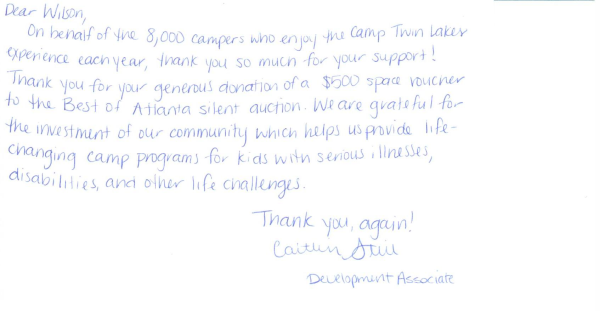 Dear Wilson,
On behalf of the 8,000 campers who enjoy the Camp Twin Lakes
experience each year, thank you so much for your support!
Thank you for your generous donation of a $500 space voucher
to the Best of Atlanta silent auction. We are grateful for
the investment of our community which helps us provide life-
changing camp programs for kids with serious illnesses,
disabilities, and other life challenges.
Thank you, again!
Caitlin
Development Associate